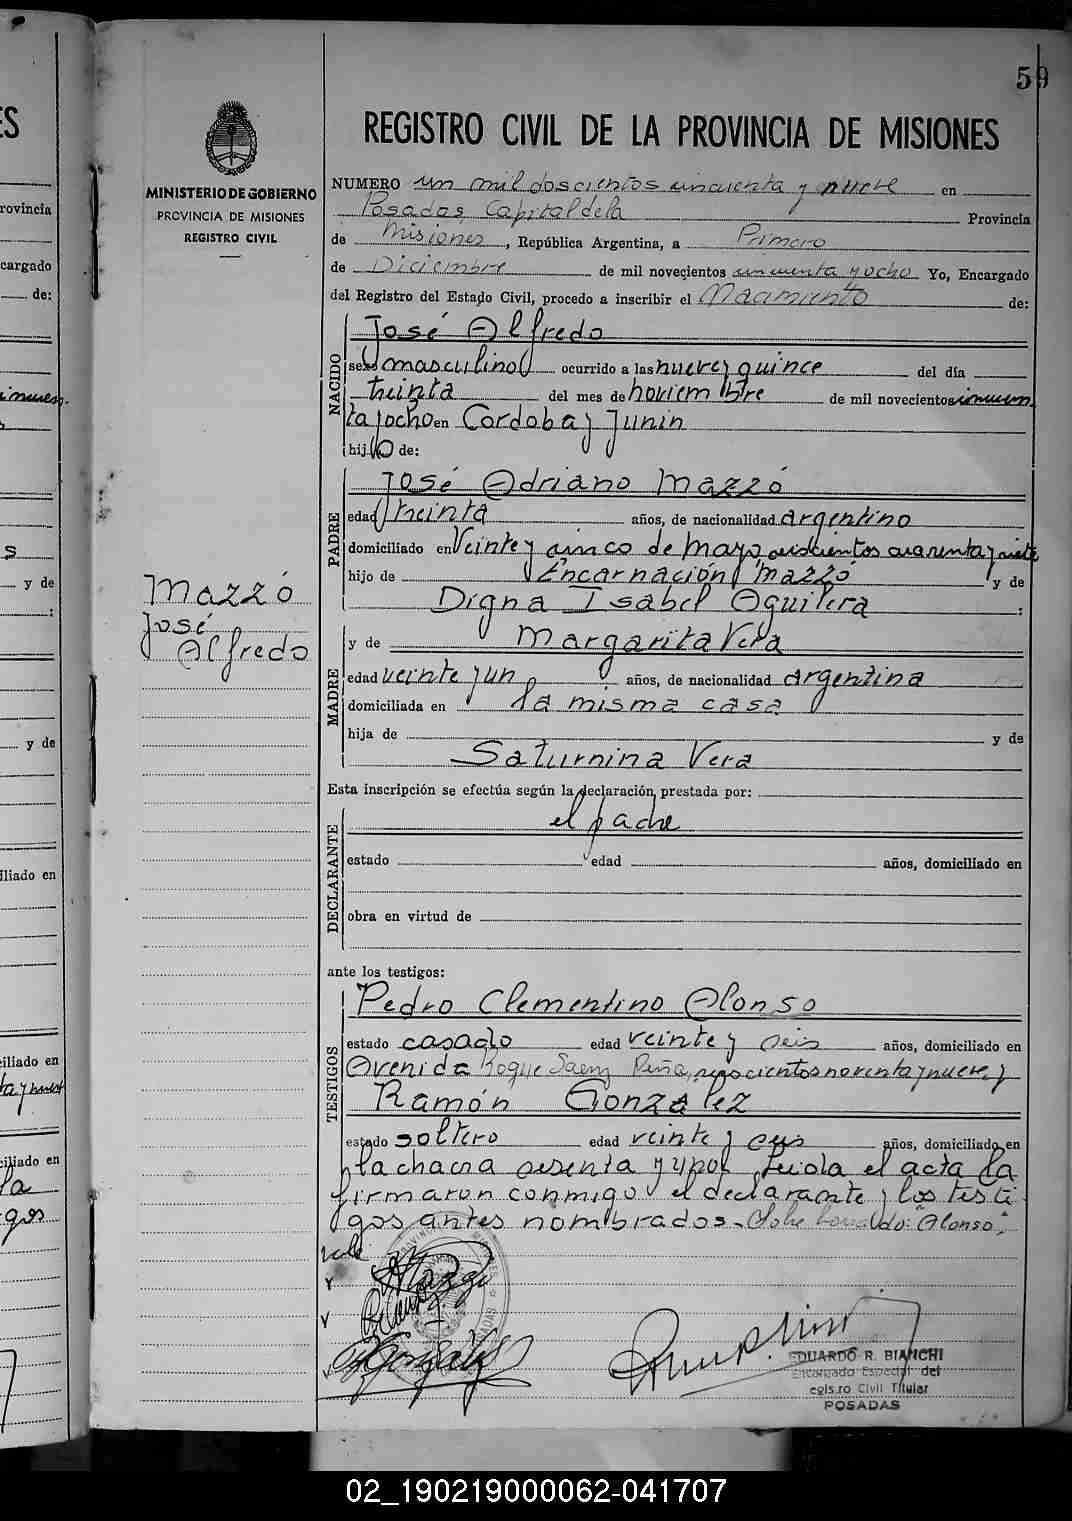 59
REGISTRO CIVIL DE LA PROVINCIA DE MISIONES
MINISTERIO DE GOBIERNO
PROVINCIA DE MISIONES
REGISTRO CIVIL
NUMERO un mil doscientos cincuenta y nueve en
Posadas, Capital de la Provincia
de Misiones, República Argentina, a Primero
de Diciembre de mil novecientos cincuenta y ocho Yo, Encargado
del Registro del Estado Civil, procedo a inscribir el Nacimiento de:
NACIDO
José Alfredo
sexo masculino ocurrido a las nueve y quince del día
treinta del mes de noviembre de mil novecientos cincuen
ta y ocho en Cordoba y Junin
hijo de:
PADRE
José Adriano Mazzó
edad treinta años, de nacionalidad argentino
domiciliado en Veinte y cinco de Mayo, cuarenta y siete
hijo de Encarnación Mazzó y de
Digna Isabel Aguilera :
Mazzó
José
Alfredo
MADRE
y de Margarita Vera
edad veinte y un años, de nacionalidad argentina
domiciliada en la misma casa
hija de y de
Saturnina Vera
Esta inscripción se efectúa según la declaración prestada por:
DECLARANTE
el padre
estado edad años, domiciliado en
obra en virtud de
ante los testigos:
TESTIGOS
Pedro Clementino Alonso
estado casado edad veinte y seis años, domiciliado en
Avenida Roque Saenz Peña, noventa y nueve, y
Ramón Gonzalez
estado soltero edad veinte y años, domiciliado en
la chacra sesenta y uno. Leida el acta la
firmaron conmigo el declarante y los testi
gos antes nombrados. Sobre borrado: "Alonso",
vale
EDUARDO R. BIANCHI
Encargado Especial del
egistro Civil Titular
POSADAS
S
rovincia
cargado
de:
s
y de
:
y de
iliado en
iliado en
iliado en
la
gos
02_190219000062-041707